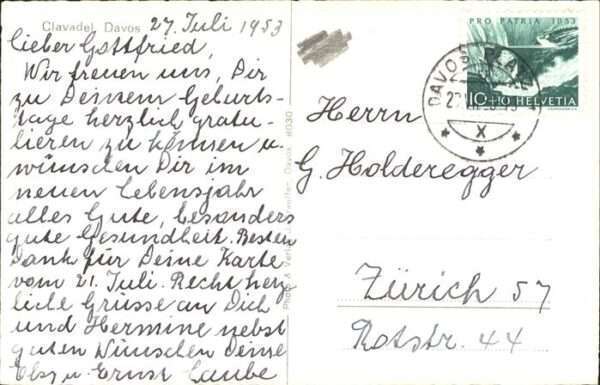 Clavadel, Davos
27. Juli 1953
Lieber Gottfried,
Wir freuen uns, Dir
zu Deinem Geburts-
tage herzlich gratu-
lieren zu können u.
wünschen Dir im
neuen Lebensjahr
alles Gute, besonders
gute Gesundheit. Besten
Dank für Deine Karte
vom 21. Juli. Recht herz
liche Grüsse an Dich
und Hermine nebst
guten Wünschen Deine
u. Ernst Laube
8030
PRO PATRIA 1953
10+10 HELVETIA
DAVOS PLATZ
X
Herrn
G. Holderegger
Zürich 57
Rotstr. 44